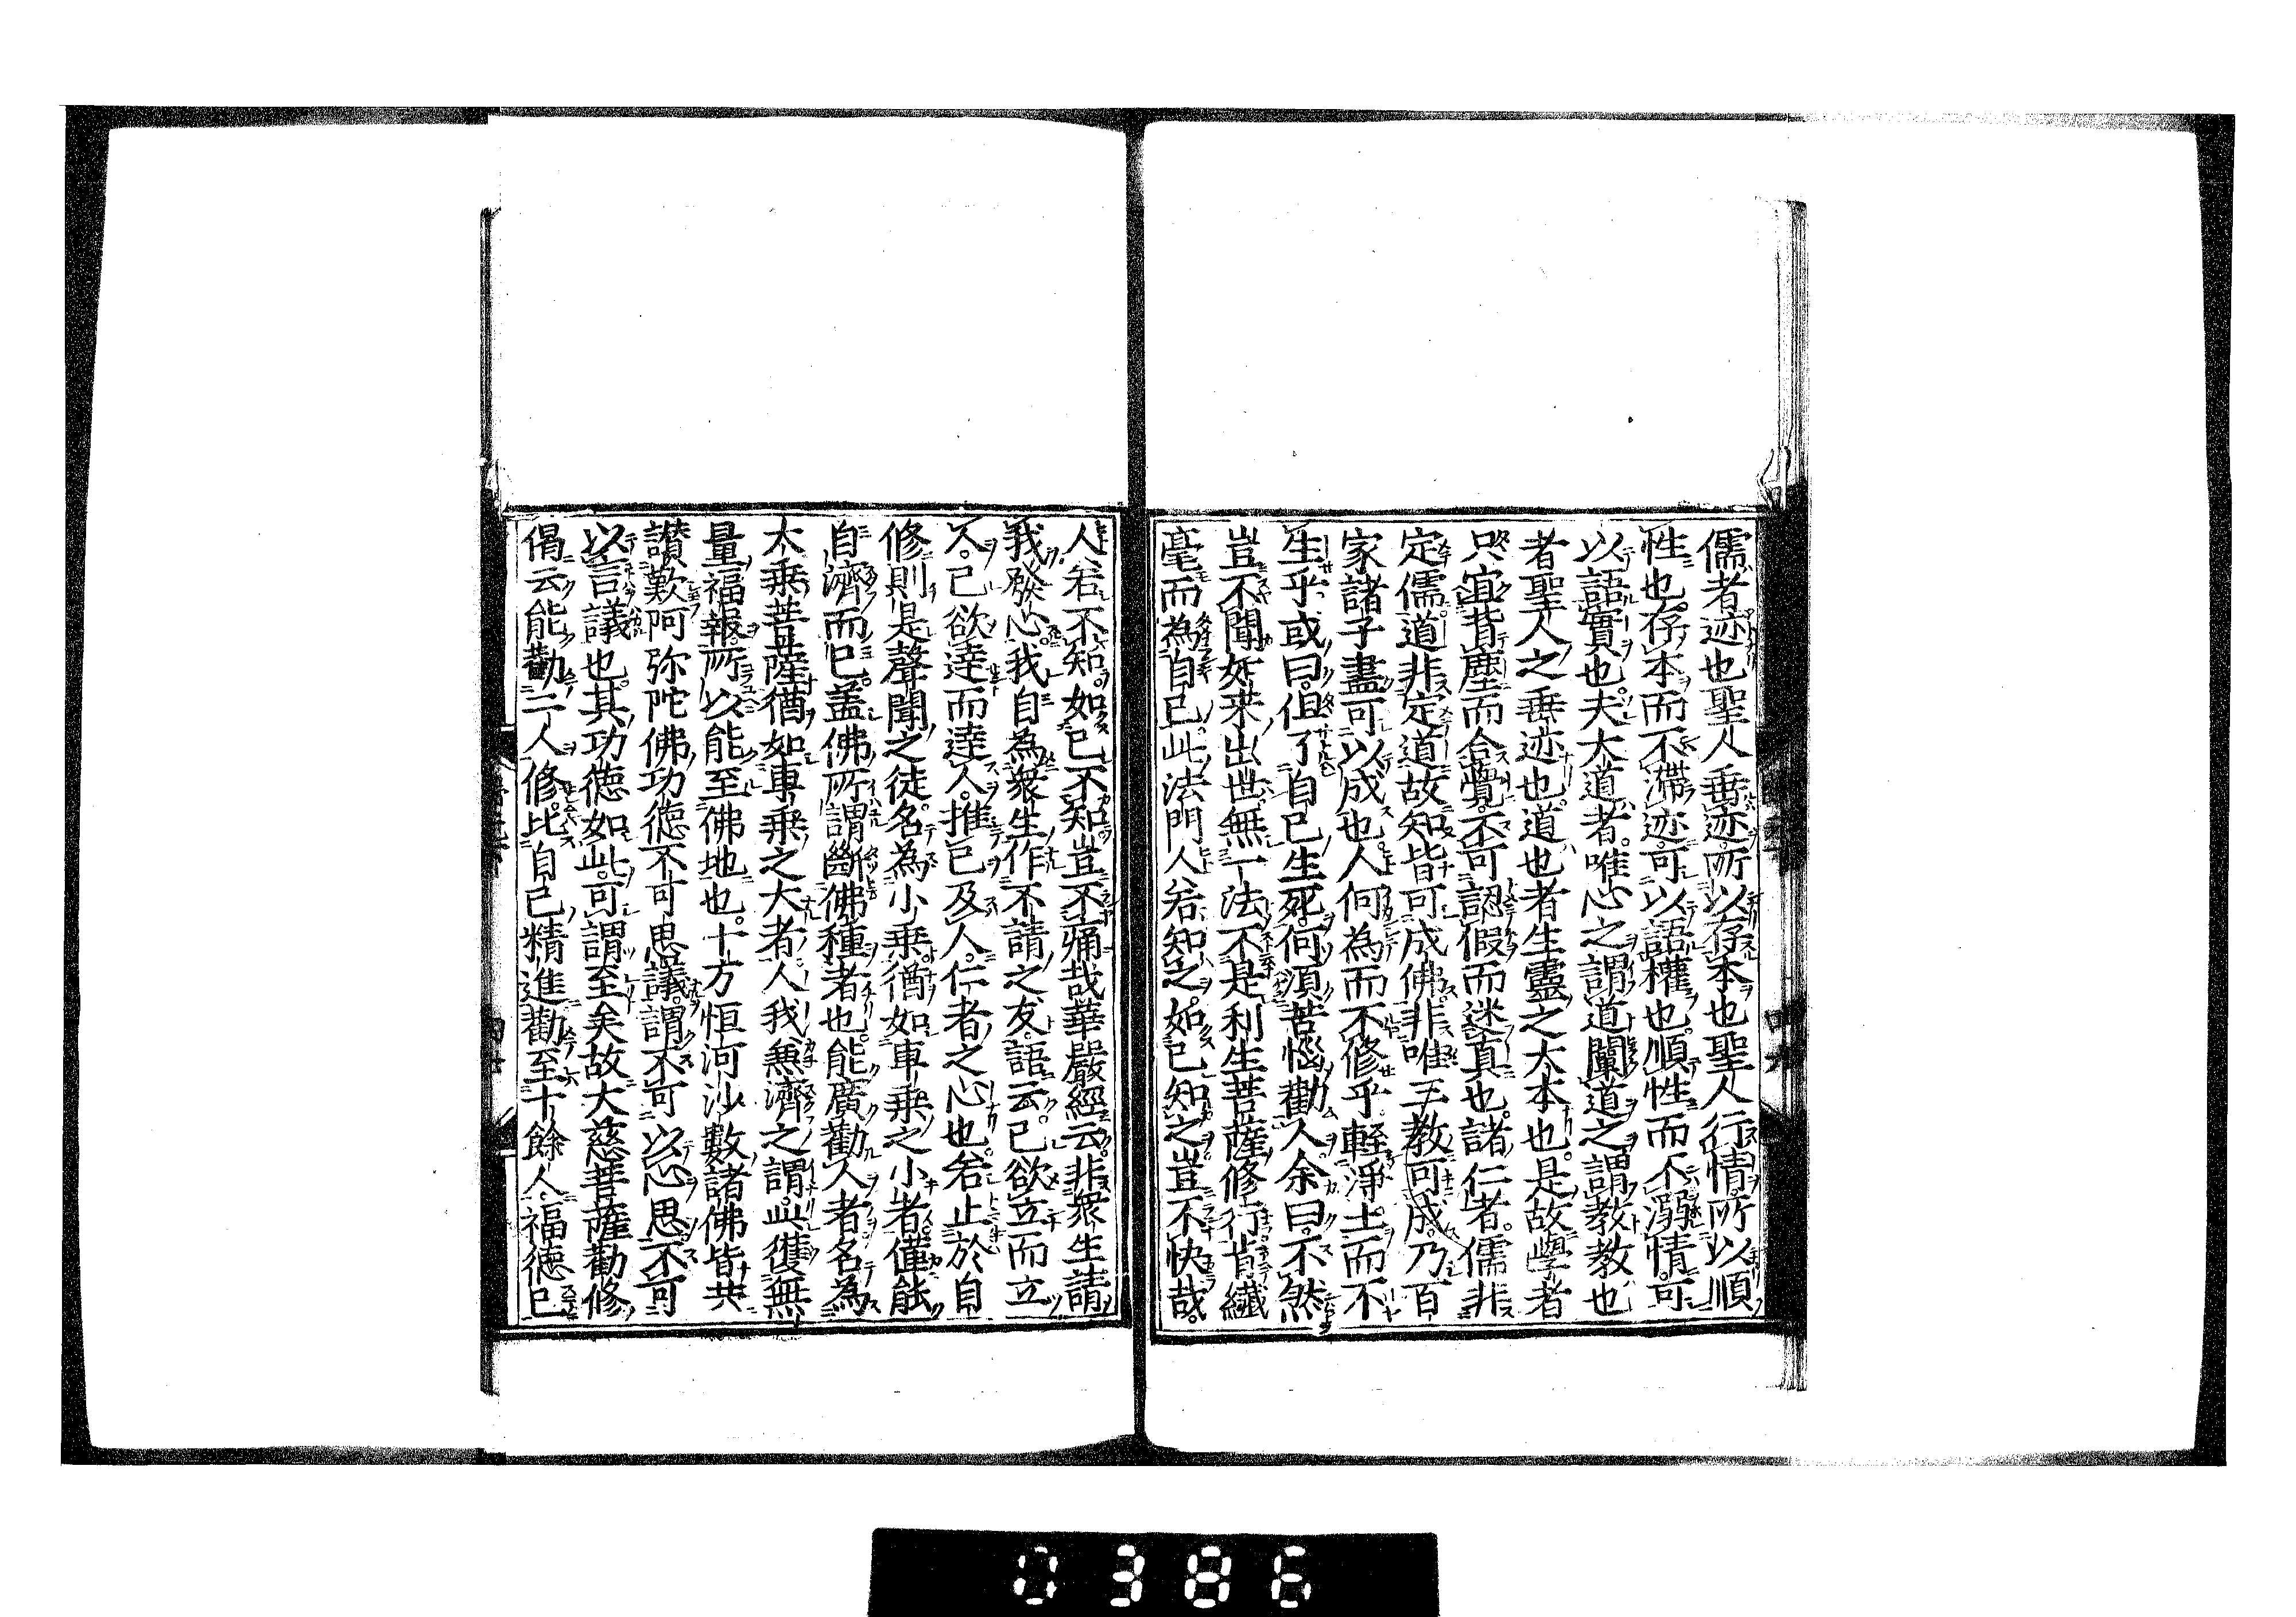 儒者迹也聖人垂迹所以存本也聖人行情所以順
性也。存本而不滯迹。可以語權也。順性而不溺情。可
以語實也。夫大道者。唯心之謂道闡道之謂教教也
者聖人之垂迹也。道也者生靈之大本也。是故學者
只宜背塵而合覺。不可認假而迷真也。諸仁者。儒非
定儒道非定道故知皆可成佛。非唯王教可成。乃百
家諸子盡可以成也。人何為而不修乎輕淨土而不
生乎或曰。但了自己生死。何須苦惱勸人余曰。不然
豈不聞如来出世。無一法不是利生菩薩修行。肯纖
毫而為自己。此法門人若知之。如已知之豈不快哉。
人若不知。如已不知豈不痛哉華嚴經云。非衆生請
我發心。我自為衆生作不請之友。語云。己欲立而立
人。己欲達而達人。推己及人。仁者之心也。若止於自
修則是聲聞之徒。名為小乗。猶如車乗之小者僅能
自濟而已。盖佛所謂斷佛種者也。能廣勸人者名為
大乗菩薩猶如車乗之大者人我兼濟之謂。此獲無
量福報。所以能至佛地也。十方恒河沙數諸佛皆共
讃歎阿弥陀佛功德不可思議。謂不可以心思不可
以言議也。其功德如此。可謂至矣故大慈菩薩勸修
偈云能勸二人修。比自己精進勸至十餘人福德已
0386